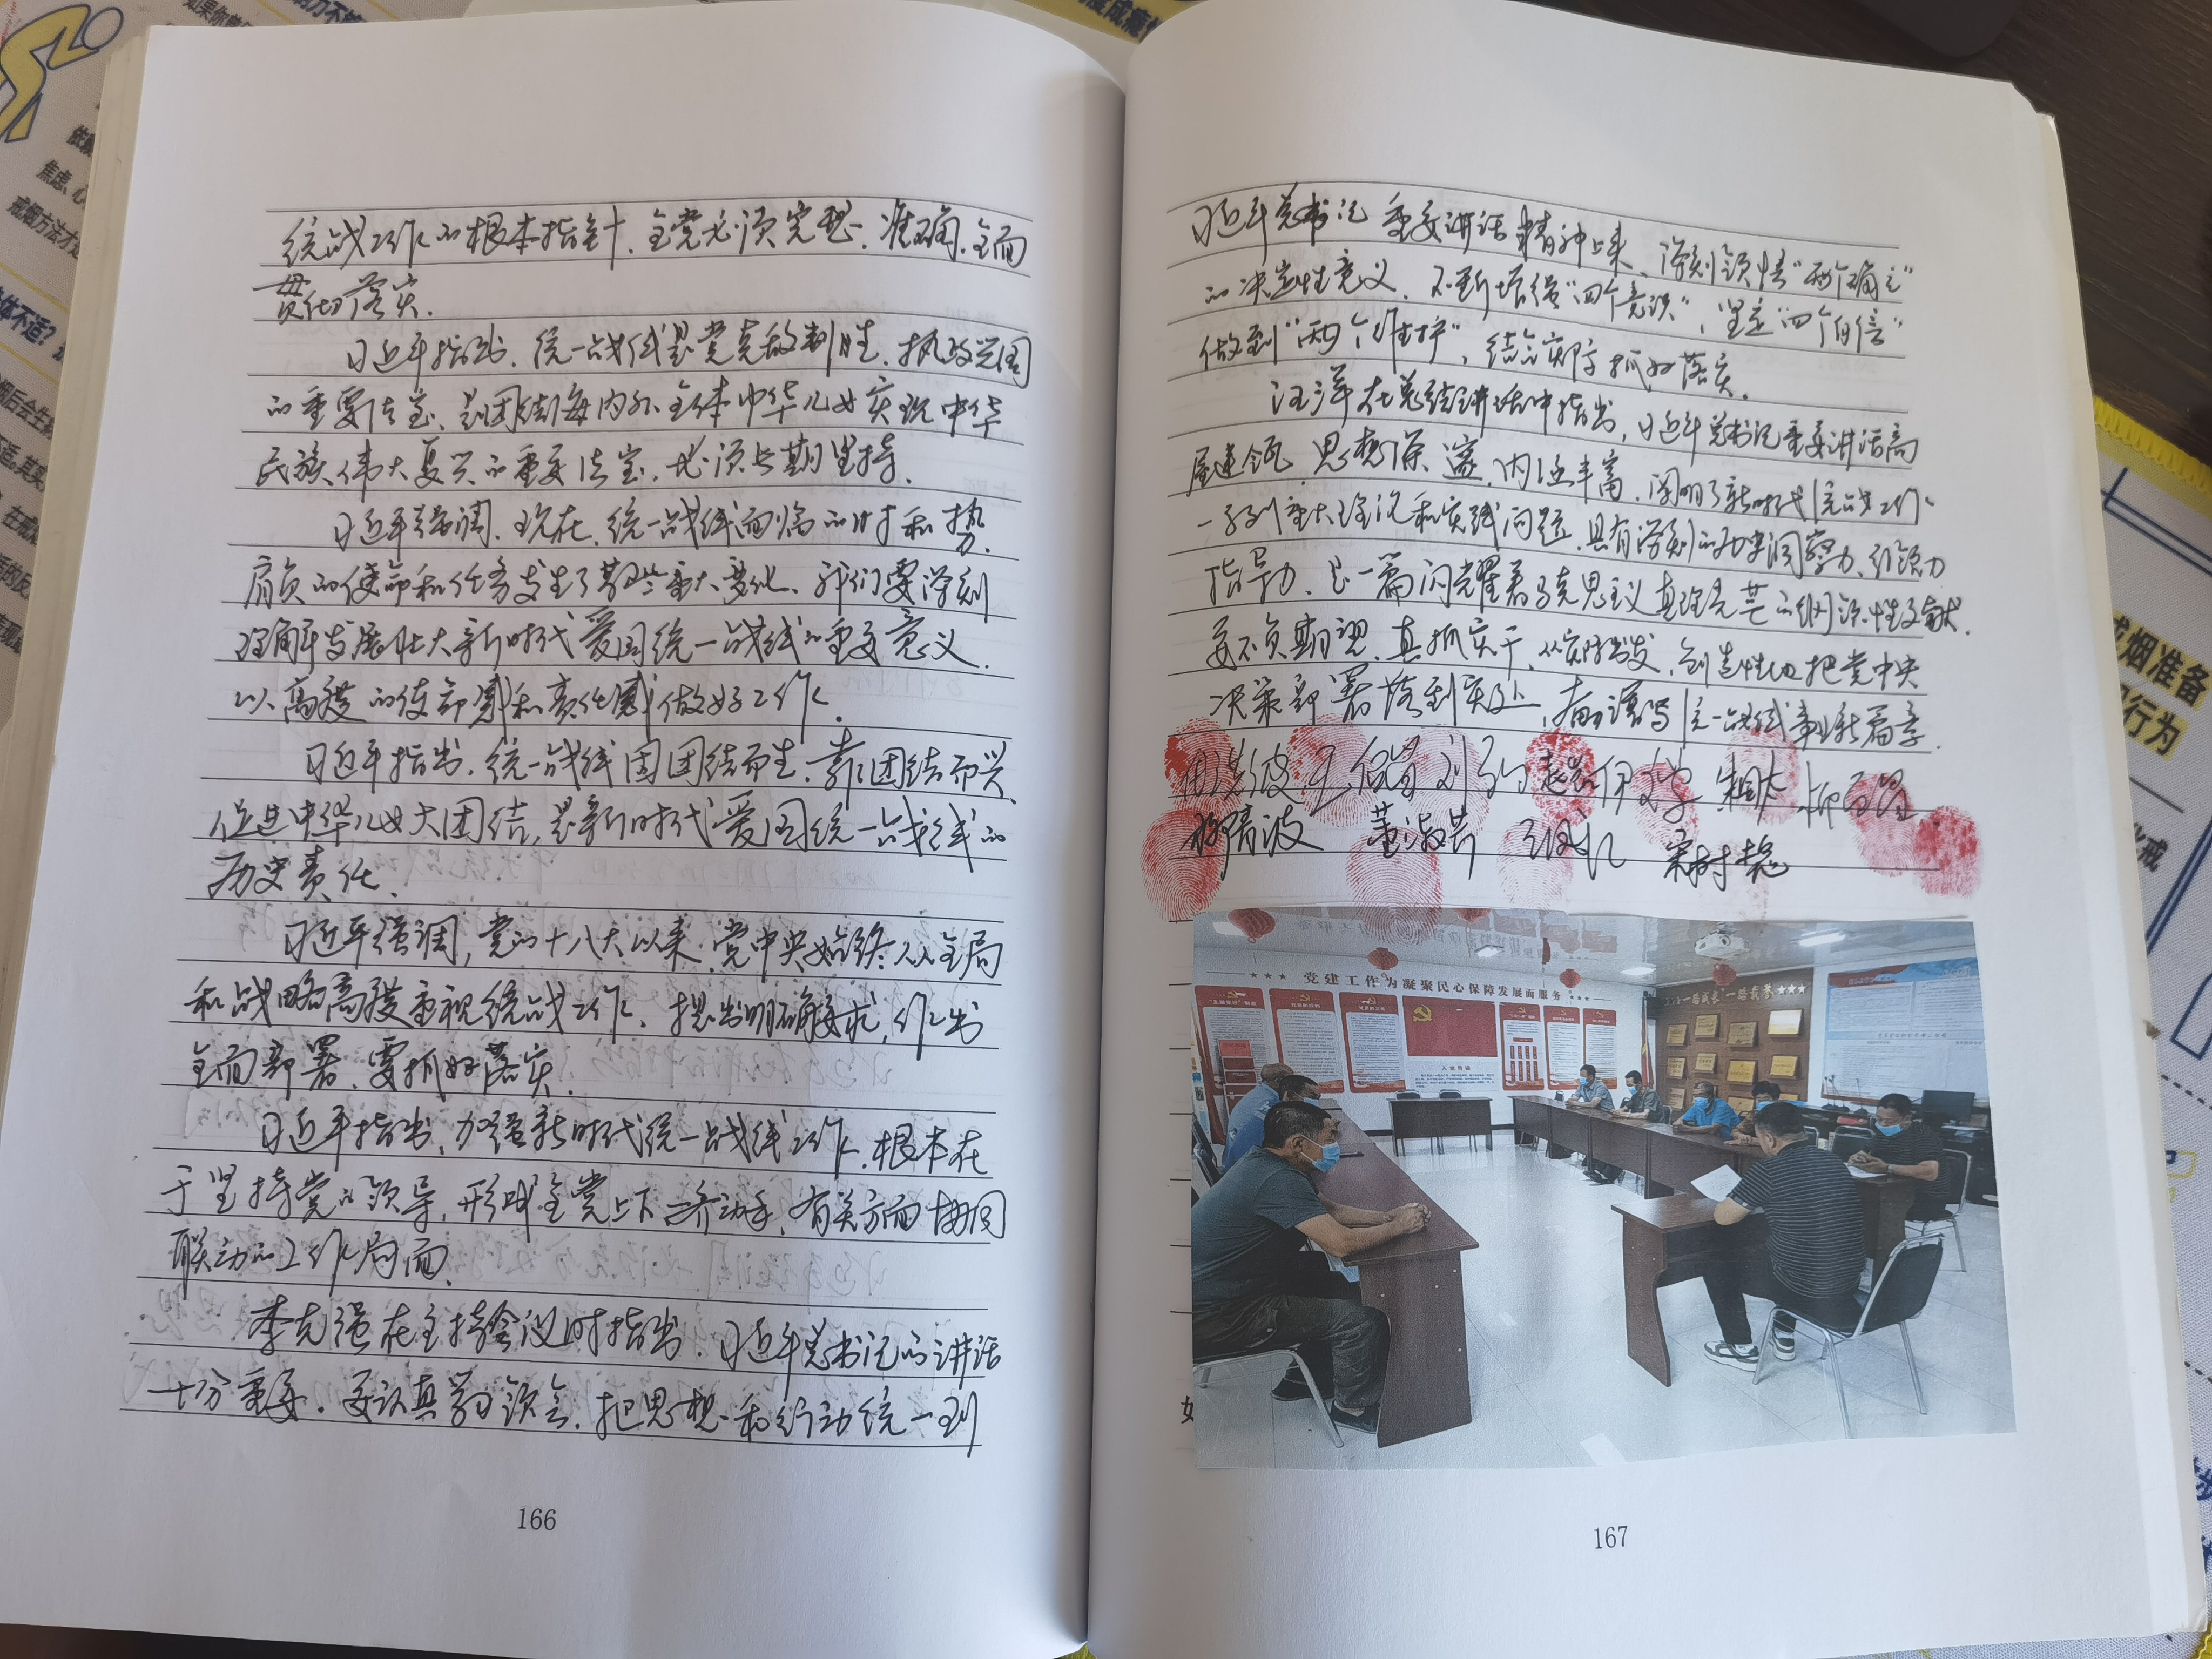 统战工作的根本指针,全党必须完整、准确、全面
贯彻落实.
习近平指出,统一战线是党克敌制胜、执政兴国
的重要法宝,是团结海内外全体中华儿女实现中华
民族伟大复兴的重要法宝,必须长期坚持.
习近平强调,现在,统一战线面临的时和势、
肩负的使命和任务发生了某些重大变化,我们要深刻
理解发展壮大新时代爱国统一战线的重要意义.
以高度的使命感和责任感做好工作.
习近平指出,统一战线因团结而生,靠团结而兴、
促进中华儿女大团结,是新时代爱国统一战线的
历史责任.
习近平强调,党的十八大以来,党中央始终从全局
和战略高度重视统战工作、提出明确要求,作出
全面部署,要抓好落实.
习近平指出,加强新时代统一战线工作,根本在
于坚持党的领导,形成全党上下一齐动手,有关方面协同
联动的工作局面.
李克强在主持会议时指出,习近平总书记的讲话
十分重要,要认真学习领会,把思想和行动统一到
166
习近平总书记重要讲话精神上来、深刻领悟“两个确立”
的决定性意义,不断增强“四个意识”,坚定“四个自信”
做到“两个维护”,结合实际抓好落实.
汪洋在总结讲话中指出,习近平总书记重要讲话高
屋建瓴、思想深邃、内涵丰富,阐明了新时代统战工作
一系列重大理论和实践问题,具有深刻的历史洞察力、引领力
指导力,是一篇闪耀着马克思主义真理光芒的纲领性文献.
要不负期望,真抓实干,从实际出发,创造性地把党中央
决策部署落到实处,奋力谱写统一战线事业新篇章.
柳清波 董淑芹 宋树聪
党建工作为凝聚民心保障发展而服务
入党誓词
一路成长 一路荣誉
戒烟准备
行为